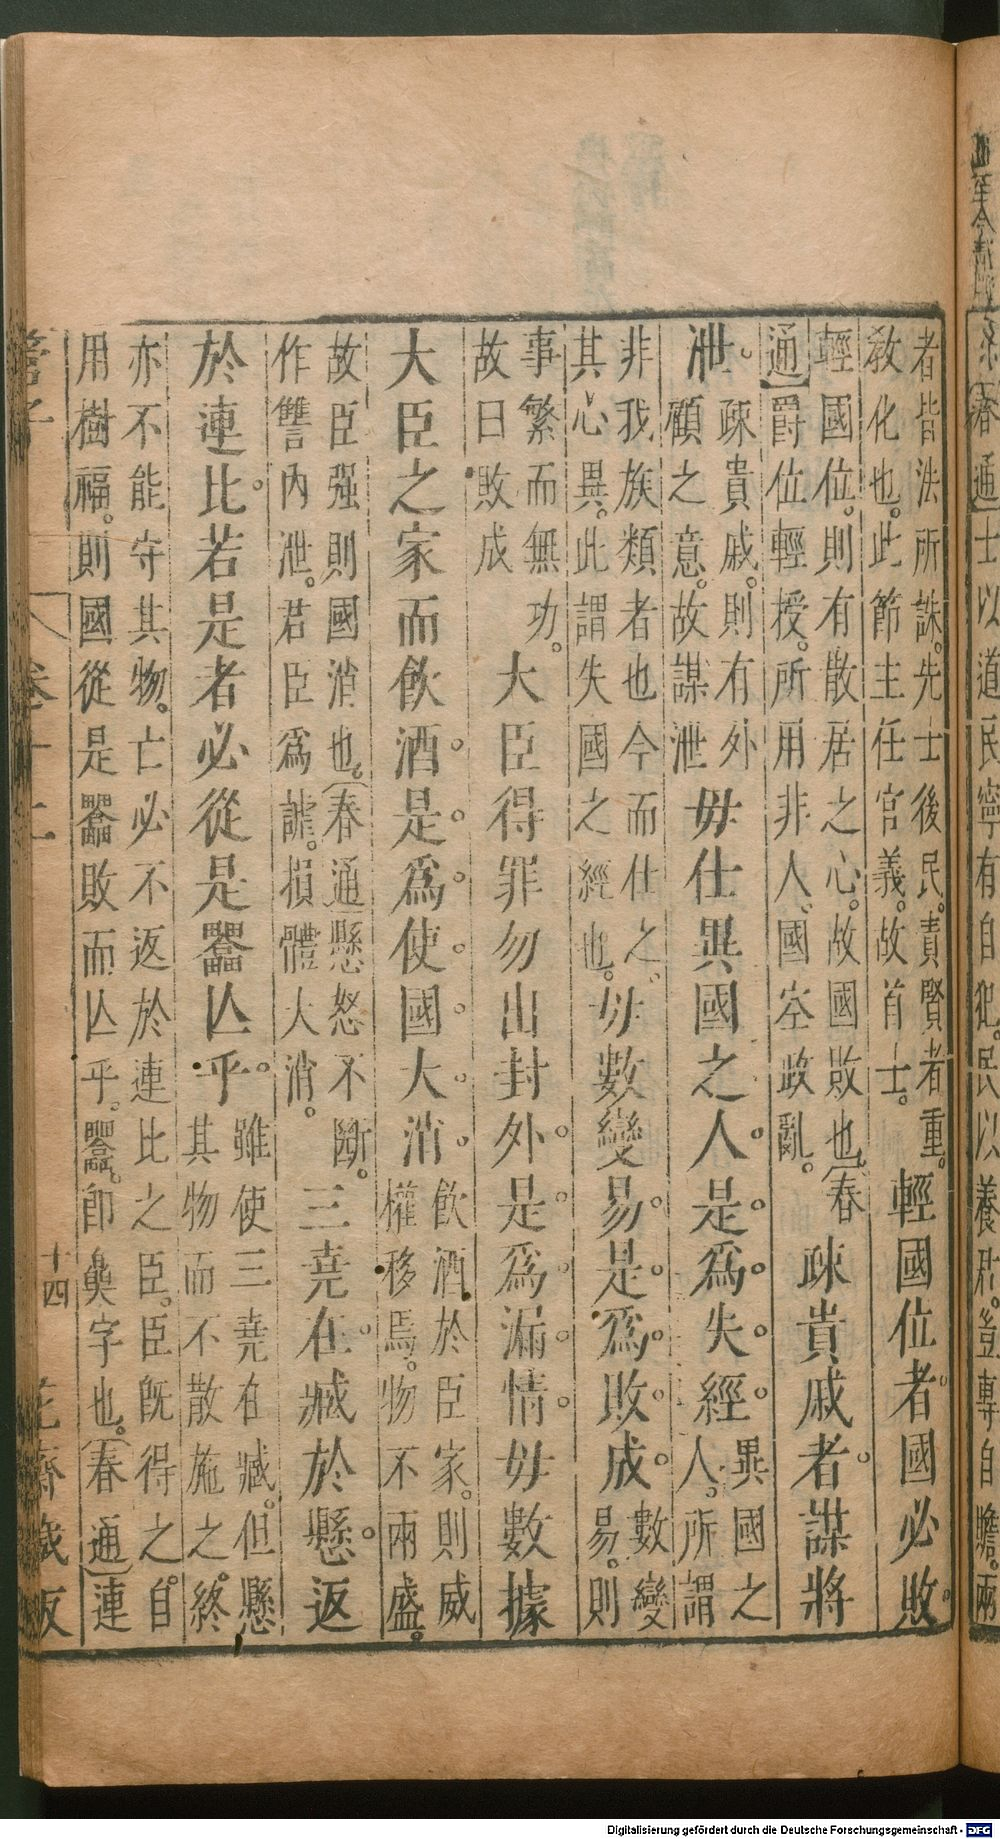 春通士以道民寧有自犯。民以養君。豈專自瞻。兩
者皆法所誅。先士後民。責賢者重。
教化也。此節主任官義。故首士。
輕國位者。國必敗。
輕國位。則有散居之心。故國敗也。(春
通)爵位輕授。所用非人。國空政亂。
疎貴戚者。謀將
泄。
疎貴戚。則有外
顧之意。故謀泄
毋仕異國之人。是。爲。失。經。
異國之
人。所謂
非我族類者也今而仕之。
其心異。此謂失國之經也。
毋數變易。是。爲。敗。成。
數變
易。則
事繁而無功。
故曰敗成
大臣得罪勿出封外。是。爲。漏。情。毋數據
大臣之家而飲酒。是。爲。使。國。大。消。
飲酒於臣家。則威
權移焉。物不兩盛。
故臣强則國消也。(春通)懸怒不斷。
作讐內泄。君臣爲謔。損體大消。
三堯在。臧於懸。返
於連比。若是者必從是亾乎。
雖使三堯在臧。但懸
其物而不散施之。終
亦不能守其物。亡必不返於連比之臣。臣既得之。自
用樹福。則國從是敗而亾乎。卽字也。(春通)連
管子 卷十二 十四 花齋藏板
Digitalisierung gefördert durch die Deutsche Forschungsgemeinschaft - DFG